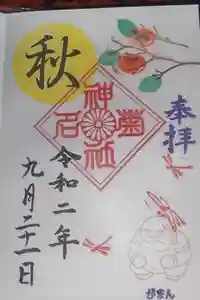 奉拝
秋
菊石
神社
令和二年
九月二十一日
がまん